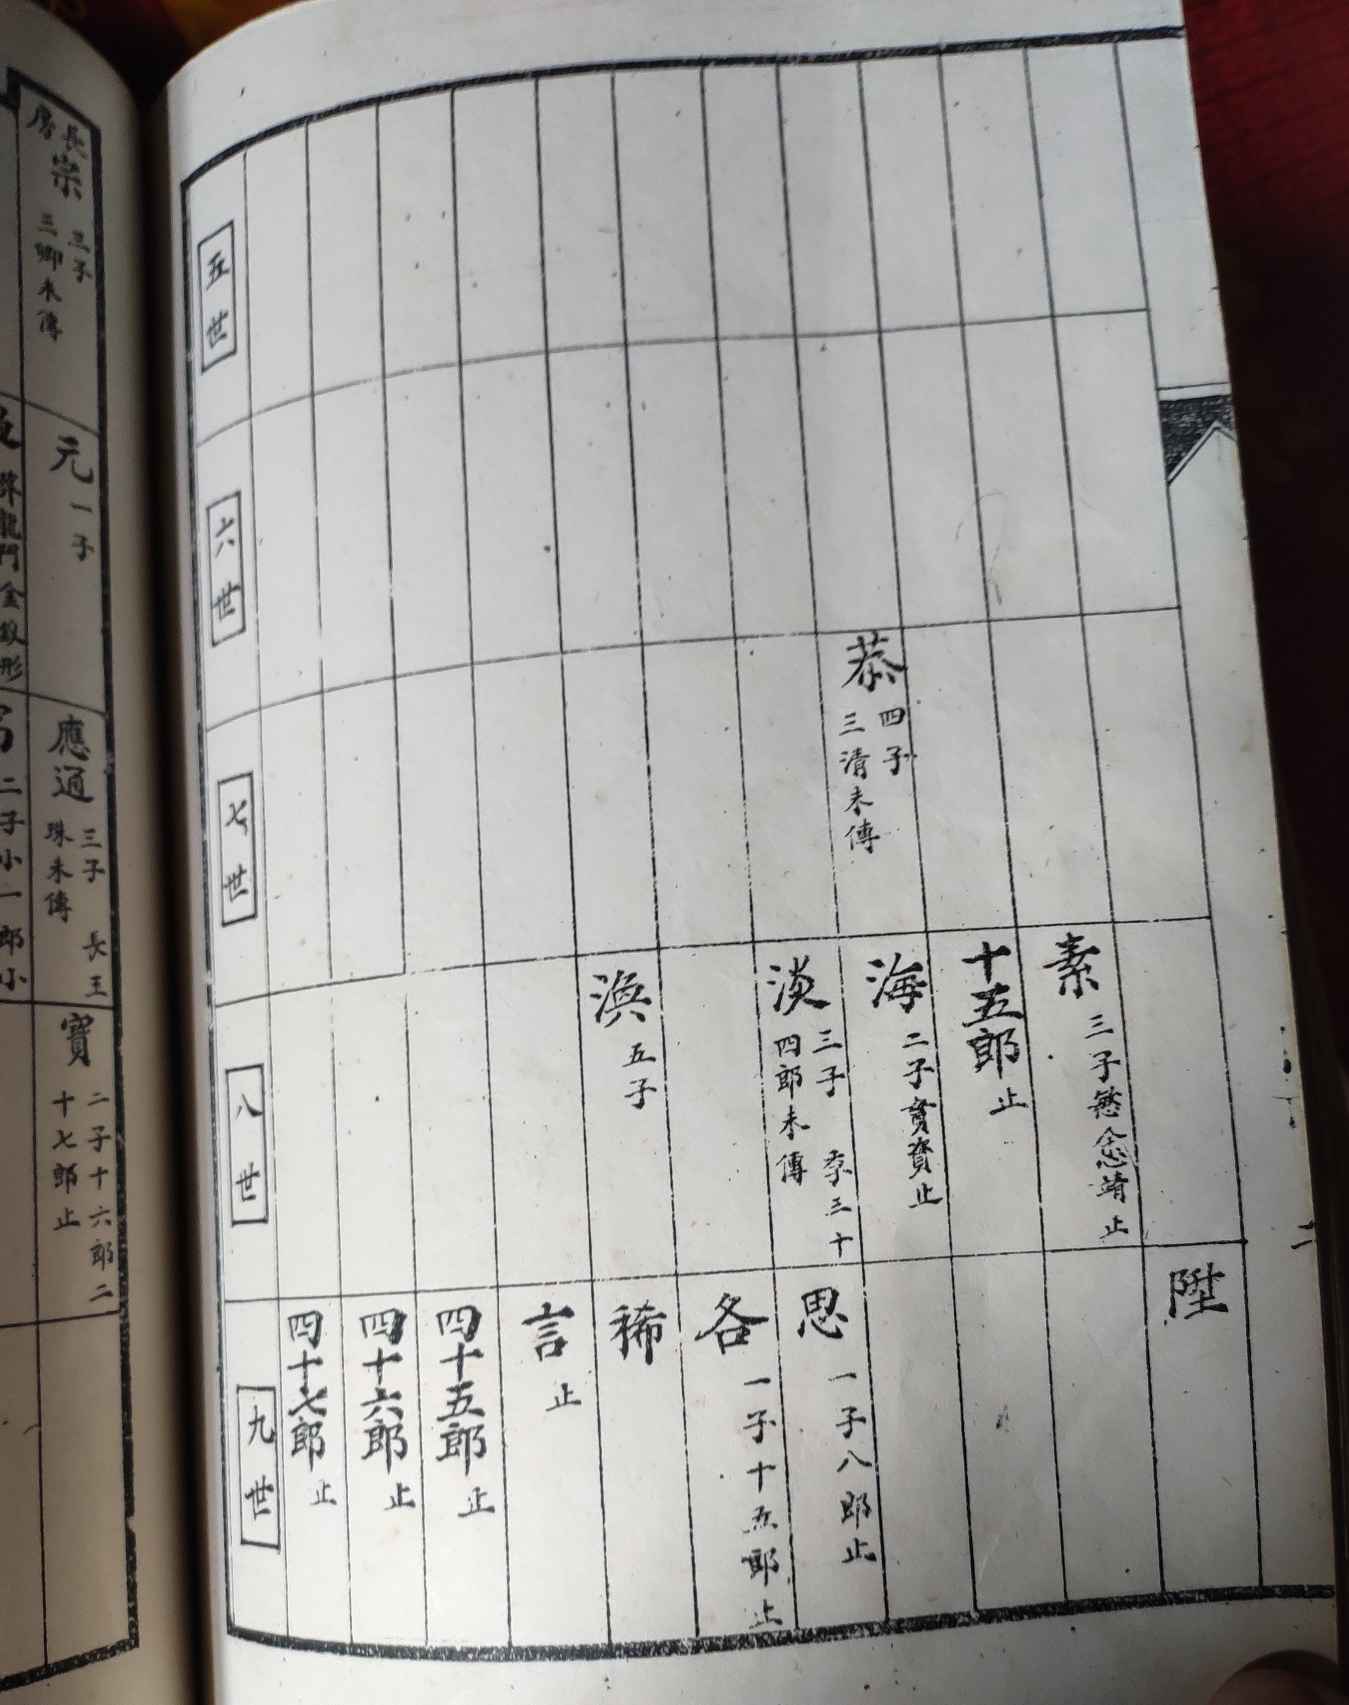 陞
素 三子慜念靖止
十五郎 止
恭 四子
三清未傳
海 二子實資止
淡 三子 泰三十
四郎未傳
思 一子八郎止
各 一子十五郎止
渙 五子
稀
言 止
四十五郎 止
四十六郎 止
四十七郎 止
五世
六世
七世
八世
九世
長房
宗 三子
三卿未傳
元 一子
應通 三子 長王
珠未傳
寶 二子十六郎二
十七郎止
葬龍門金釵形
二子小一郎小